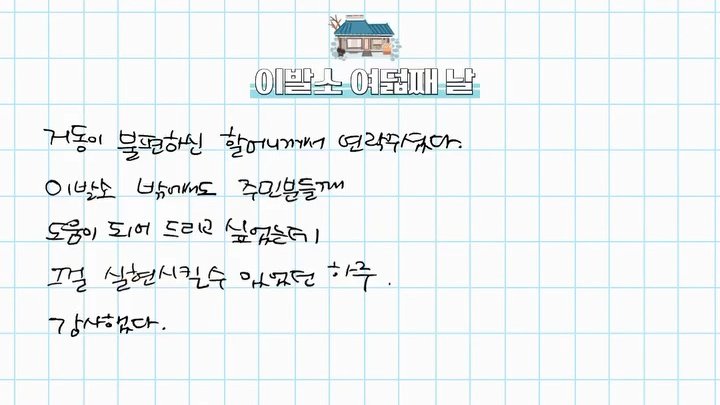 이발소 여덟째 날
거동이 불편하신 할머니께서 연락주셨다.
이발소 밖에서도 주민분들께
도움이 되어 드리고 싶었는데
그걸 실현시킬수 있었던 하루.
감사했다.